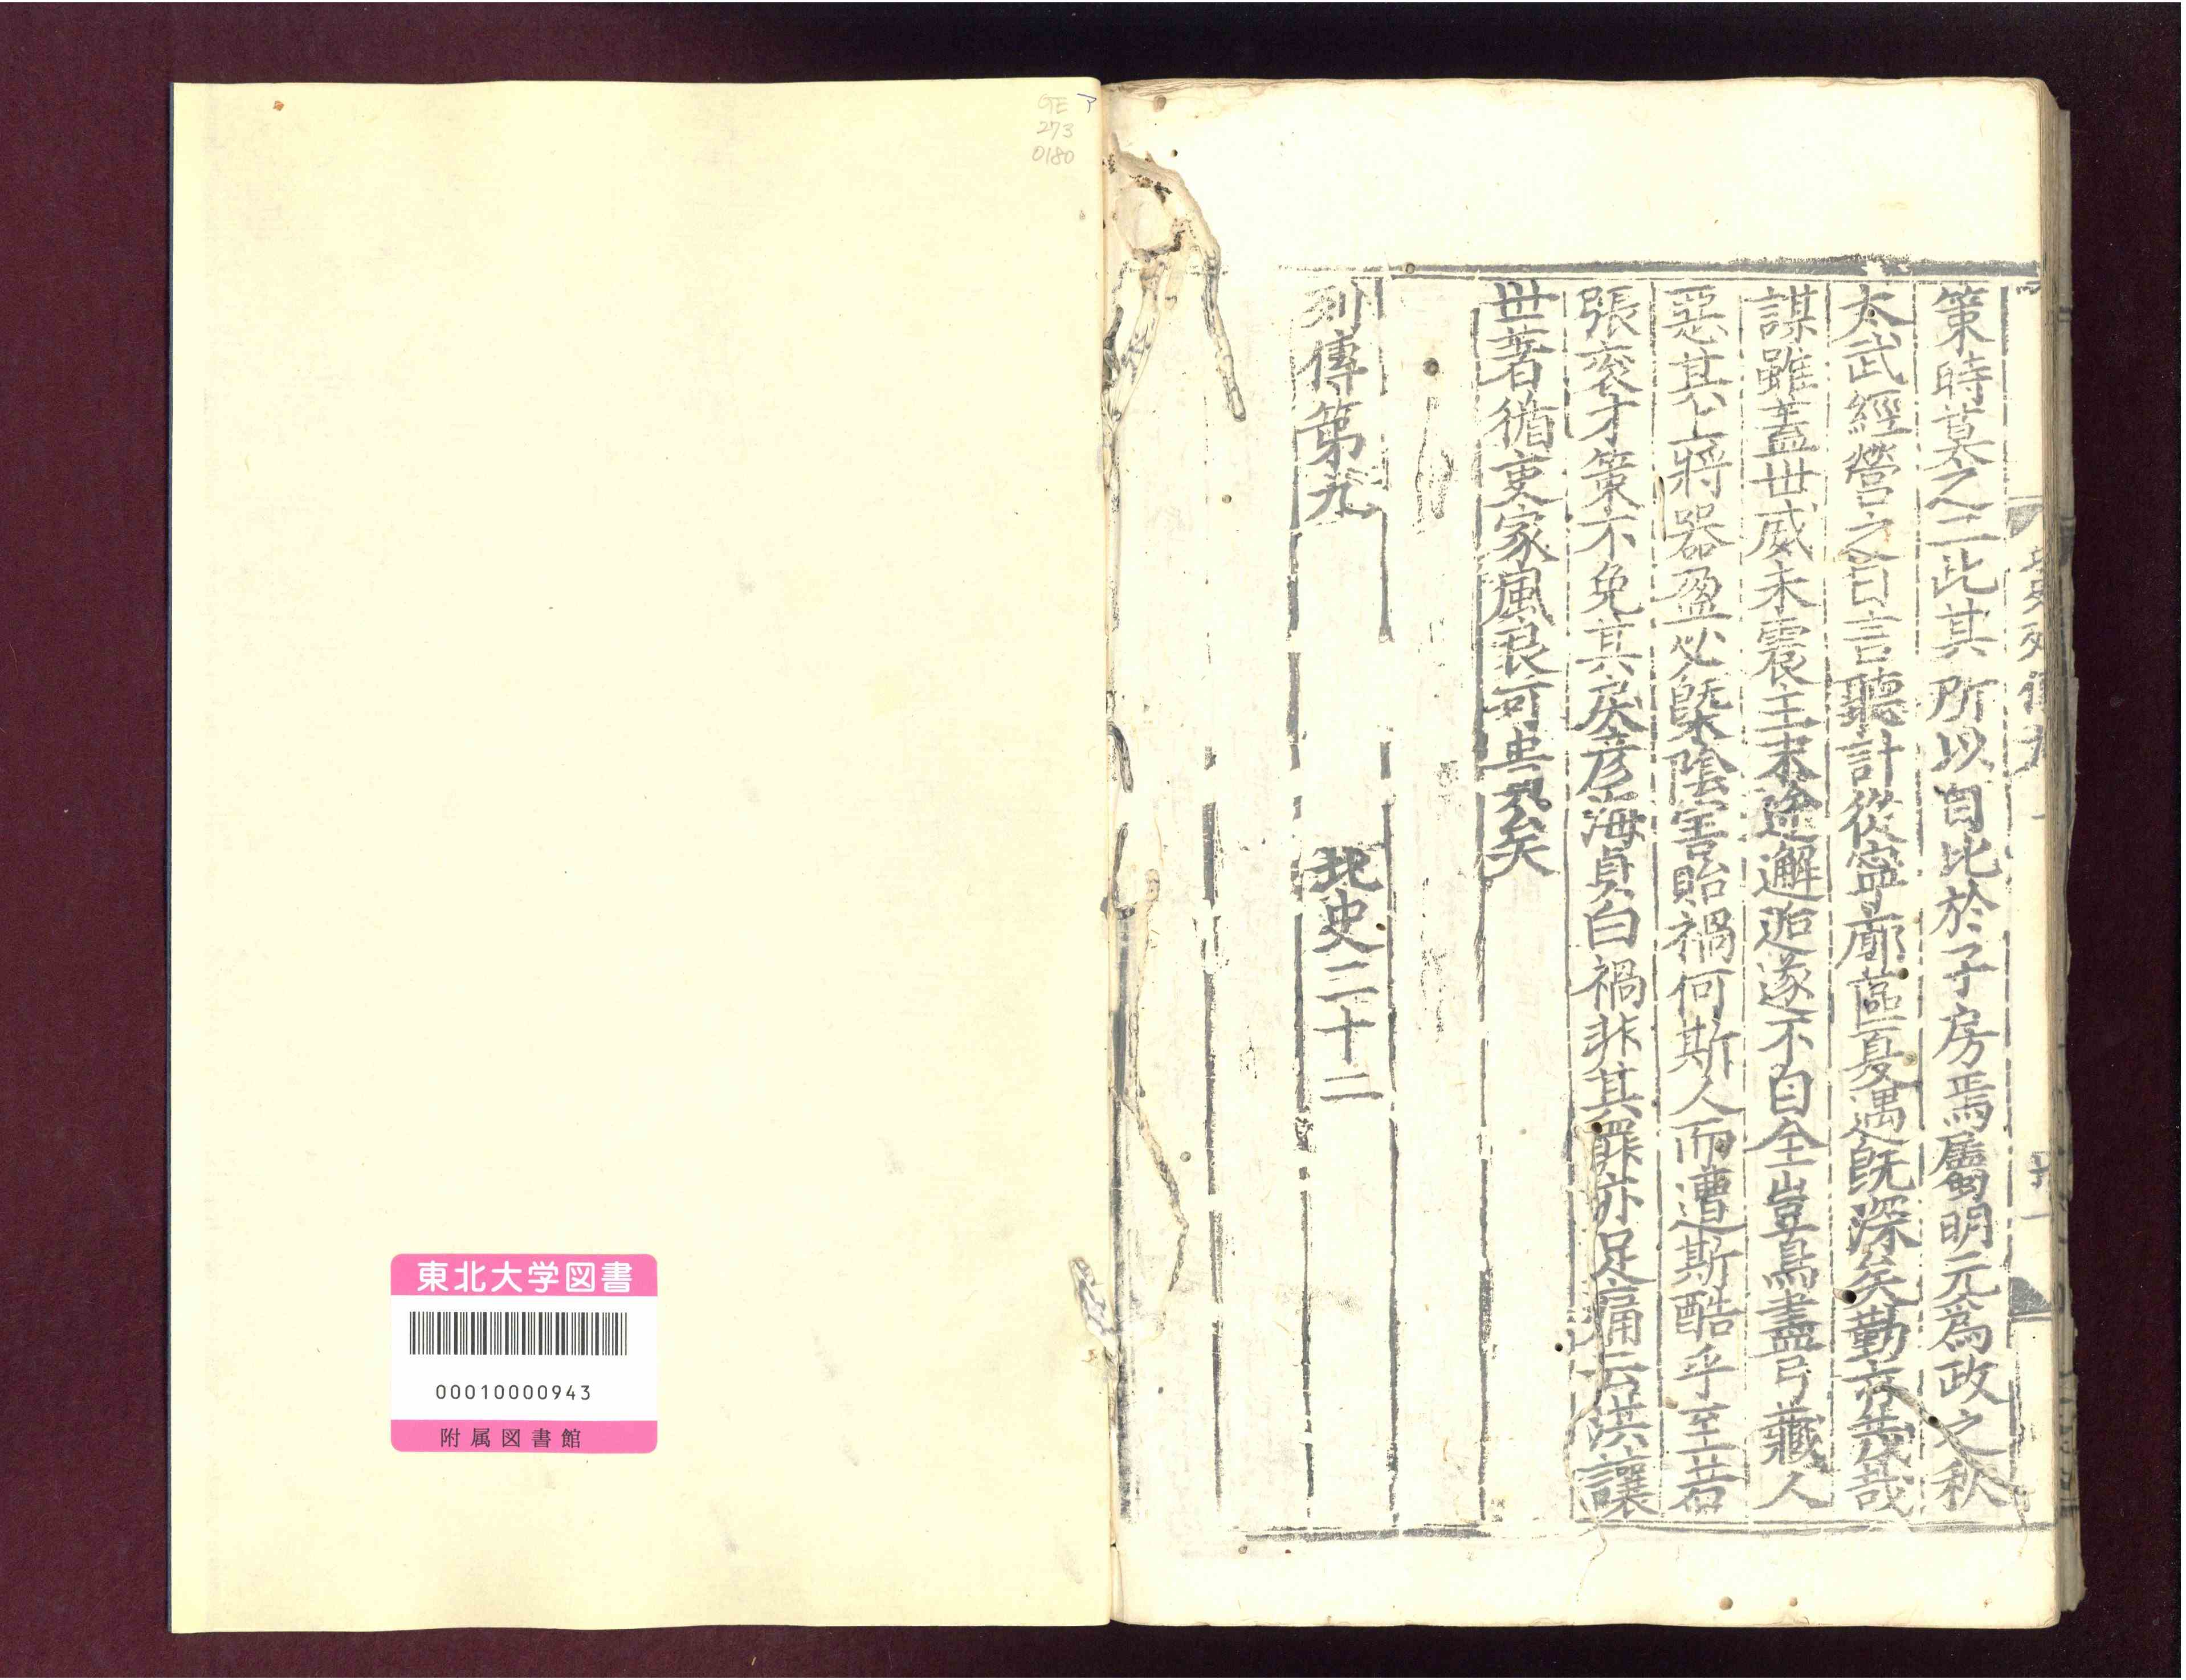 策時莫之二此其所以自比於子房焉屬明元爲政之秋
太武經營之日言聽計從寧廓區夏遇旣深矣勤亦茂哉
謀雖蓋世威未震主末途邂逅遂不自全豈鳥盡弓藏人
惡其上將器盈必槩陰害貽禍何斯人而遭斯酷乎至若
張衮才策不免其戾彦海貞白禍非其罪亦足痛云洪讓
世著循吏家風良可貴矣
列傳第九
北史二十二
GE
273
0180
東北大学図書
00010000943
附属図書館